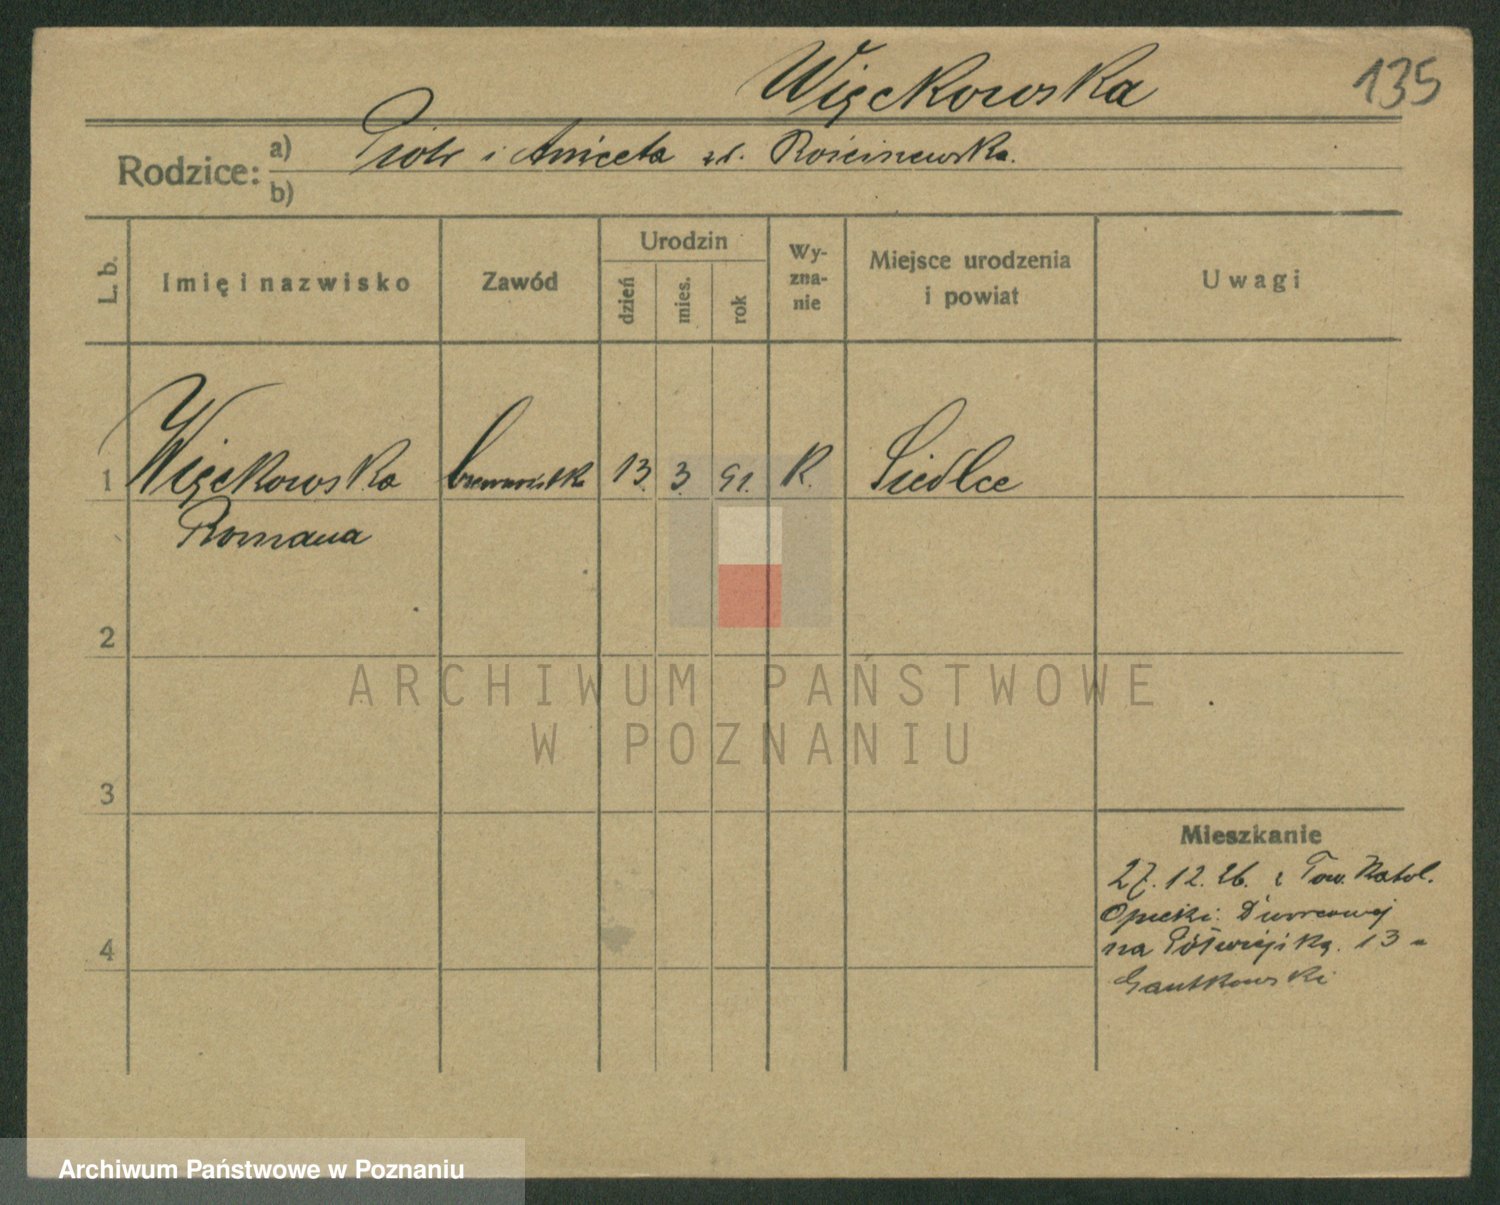 Więckowska 135
Rodzice: a) Piotr i Aniceta zd. Rościszewska.
b)
L. b. Imię i nazwisko Zawód Urodzin dzień mies. rok Wyznanie Miejsce urodzenia i powiat Uwagi
1 Więckowska 13. 3. 91. R. Siedlce
Romana
2
ARCHIWUM PAŃSTWOWE
W POZNANIU
3
Mieszkanie
27.12.26. z Tow. Katol.
Opieki Dworcowej
4 na Półwiejską. 13
Gautkowski
Archiwum Państwowe w Poznaniu